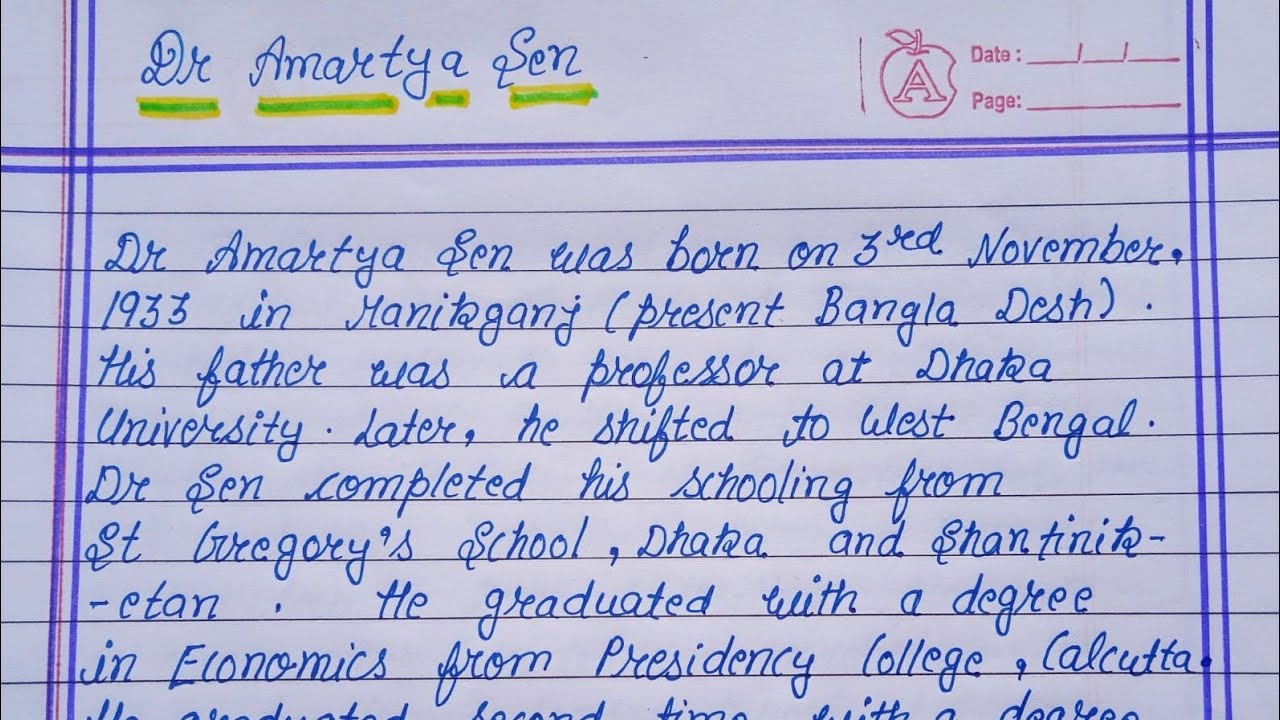 Dr Amartya Sen
A
Date : __/__/__
Page: ______
Dr Amartya Sen was born on 3rd November.
1933 in Manikganj (present Bangla Desh) .
His father was a professor at Dhaka
University. Later, he shifted to West Bengal.
Dr Sen completed his schooling from
St Gregory's School, Dhaka and Shantinik-
-etan . He graduated with a degree
in Economics from Presidency College, Calcutta.
He graduated second time with a degree